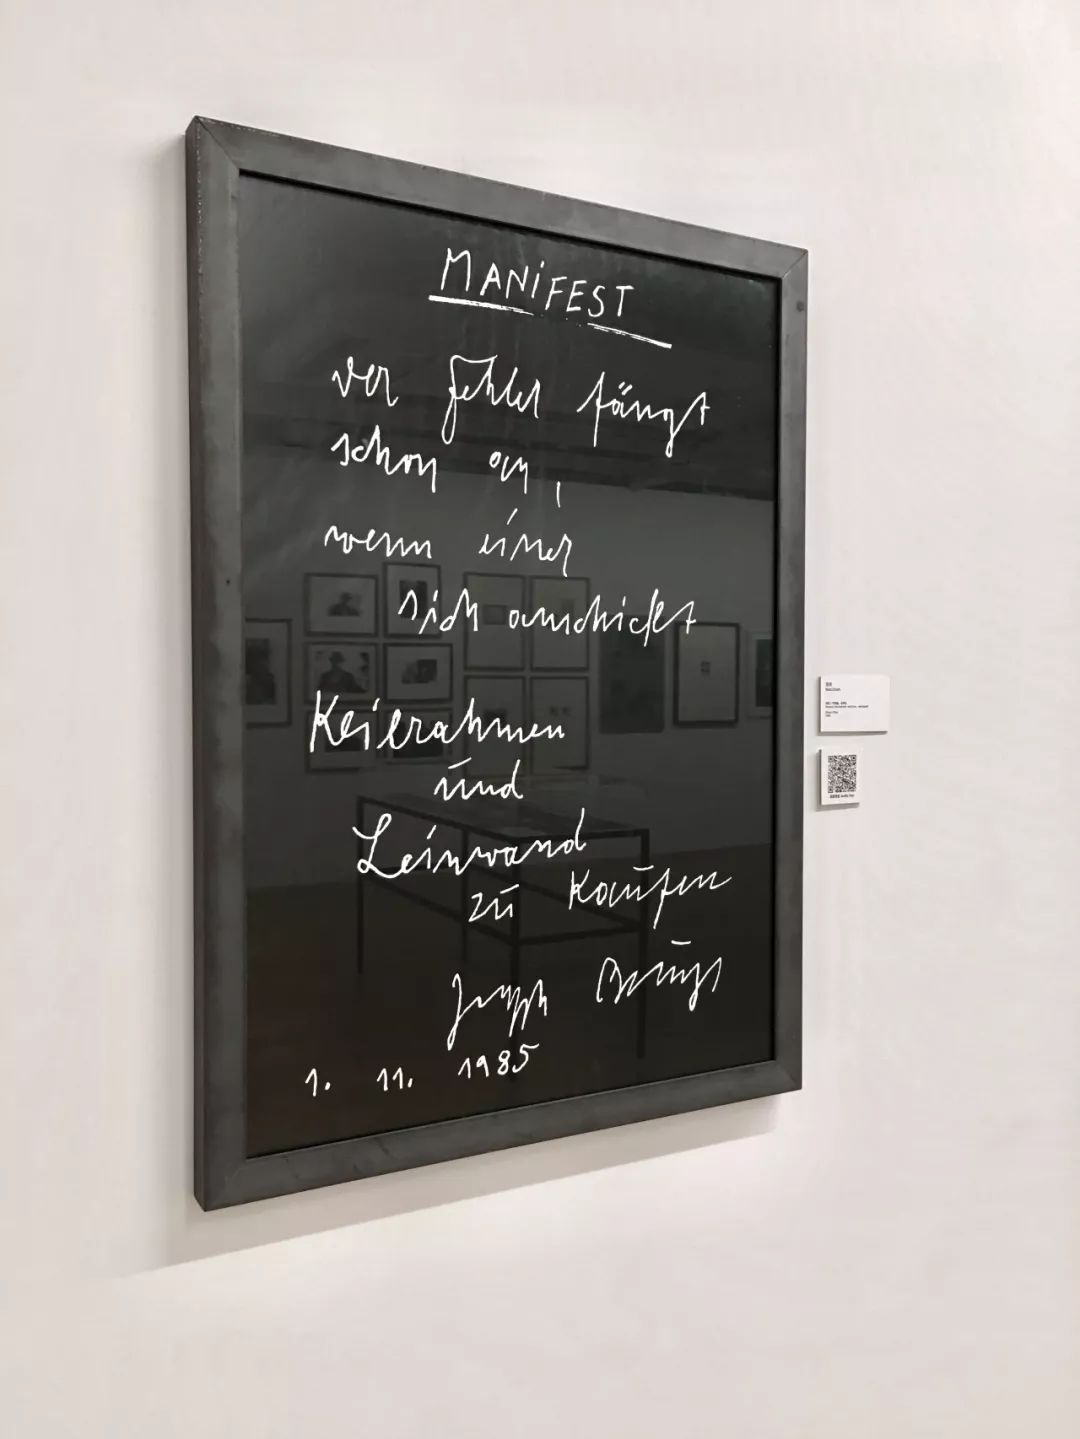 MANiFEST
der Fehler fängt
schon an,
wenn einer
sich anschickt
Keilrahmen
und
Leinwand
zu kaufen
Joseph Beuys
1. 11. 1985